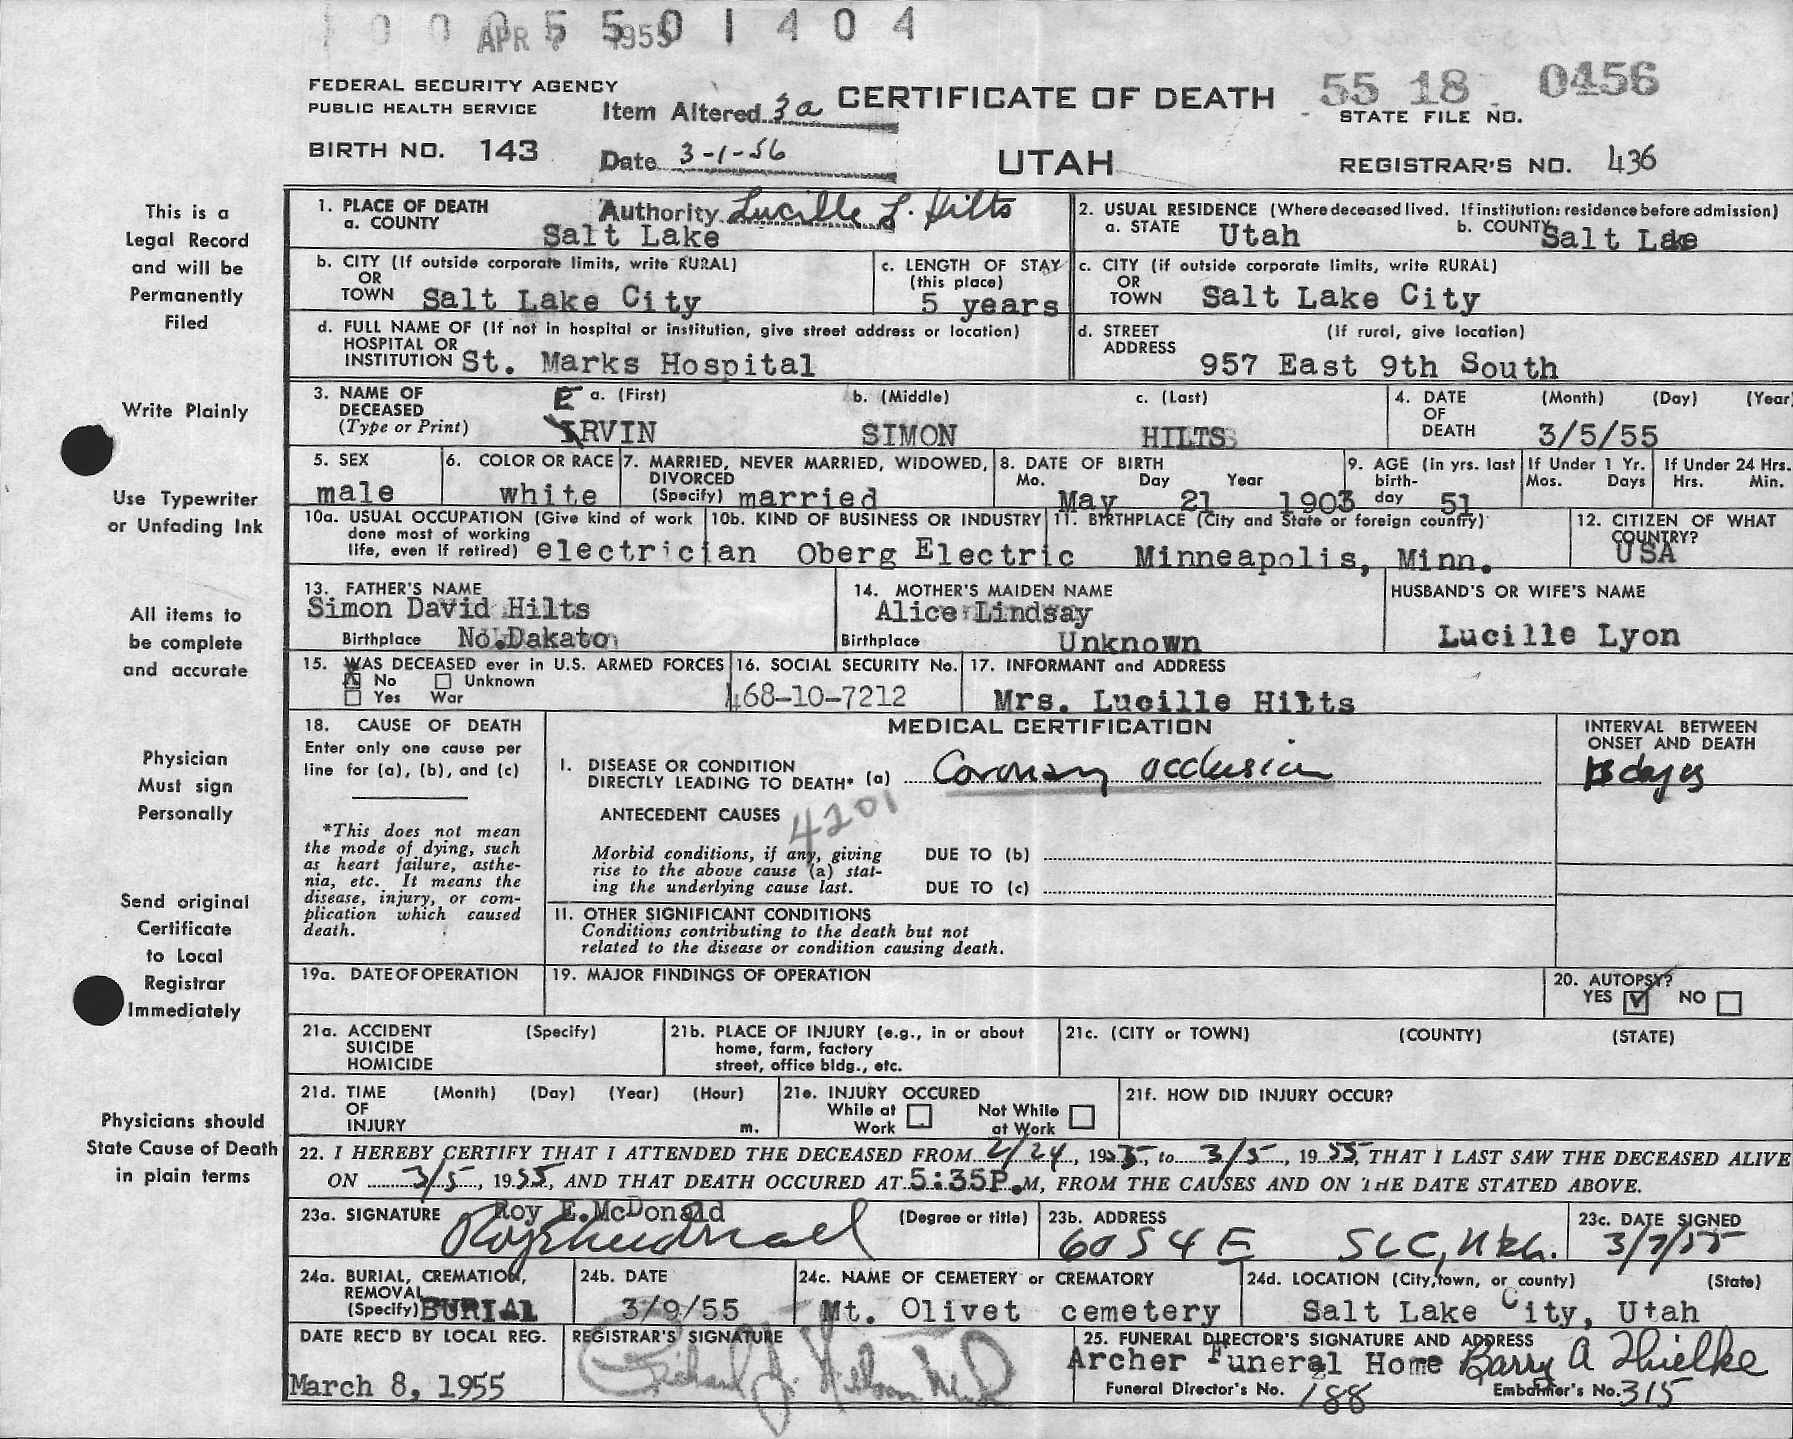 1 0 0 5 5 0 1 4 0 4
APR 1955
FEDERAL SECURITY AGENCY
PUBLIC HEALTH SERVICE
Item Altered 3a
CERTIFICATE OF DEATH
55 18 0456
STATE FILE NO.
BIRTH NO. 143
Date 3-1-56
UTAH
REGISTRAR'S NO. 436
This is a
Legal Record
and will be
Permanently
Filed
Write Plainly
Use Typewriter
or Unfading Ink
All items to
be complete
and accurate
Physician
Must sign
Personally
Send original
Certificate
to Local
Registrar
Immediately
Physicians should
State Cause of Death
in plain terms
1. PLACE OF DEATH
a. COUNTY
Authority Lucille L. Hilts
Salt Lake
2. USUAL RESIDENCE (Where deceased lived. If institution: residence before admission)
a. STATE Utah
b. COUNTY Salt Lake
b. CITY (If outside corporate limits, write RURAL)
OR
TOWN Salt Lake City
c. LENGTH OF STAY
(this place)
5 years
c. CITY (if outside corporate limits, write RURAL)
OR
TOWN Salt Lake City
d. FULL NAME OF (If not in hospital or institution, give street address or location)
HOSPITAL OR
INSTITUTION St. Marks Hospital
d. STREET (If rural, give location)
ADDRESS
957 East 9th South
3. NAME OF
DECEASED
(Type or Print)
a. (First) b. (Middle) c. (Last)
E
IRVIN SIMON HILTS
4. DATE (Month) (Day) (Year
OF
DEATH 3/5/55
5. SEX
male
6. COLOR OR RACE
white
7. MARRIED, NEVER MARRIED, WIDOWED,
DIVORCED
(Specify) married
8. DATE OF BIRTH
Mo. Day Year
May 21 1903
9. AGE (In yrs. last
birth-
day 51
If Under 1 Yr.
Mos. Days
If Under 24 Hrs.
Hrs. Min.
10a. USUAL OCCUPATION (Give kind of work
done most of working
life, even if retired) electrician
10b. KIND OF BUSINESS OR INDUSTRY
Oberg Electric
11. BIRTHPLACE (City and State or foreign country)
Minneapolis, Minn.
12. CITIZEN OF WHAT
COUNTRY?
USA
13. FATHER'S NAME
Simon David Hilts
Birthplace No.Dakato
14. MOTHER'S MAIDEN NAME
Alice Lindsay
Birthplace Unknown
HUSBAND'S OR WIFE'S NAME
Lucille Lyon
15. WAS DECEASED ever in U.S. ARMED FORCES
X No Unknown
Yes War
16. SOCIAL SECURITY No.
468-10-7212
17. INFORMANT and ADDRESS
Mrs. Lucille Hilts
18. CAUSE OF DEATH
Enter only one cause per
line for (a), (b), and (c)
*This does not mean
the mode of dying, such
as heart failure, asthe-
nia, etc. It means the
disease, injury, or com-
plication which caused
death.
MEDICAL CERTIFICATION
INTERVAL BETWEEN
ONSET AND DEATH
I. DISEASE OR CONDITION
DIRECTLY LEADING TO DEATH* (a) Coronary occlusion
days
ANTECEDENT CAUSES
4201
Morbid conditions, if any, giving
rise to the above cause (a) stat-
ing the underlying cause last.
DUE TO (b)
DUE TO (c)
II. OTHER SIGNIFICANT CONDITIONS
Conditions contributing to the death but not
related to the disease or condition causing death.
19a. DATE OF OPERATION
19. MAJOR FINDINGS OF OPERATION
20. AUTOPSY?
YES NO
21a. ACCIDENT (Specify)
SUICIDE
HOMICIDE
21b. PLACE OF INJURY (e.g., in or about
home, farm, factory
street, office bldg., etc.
21c. (CITY or TOWN) (COUNTY) (STATE)
21d. TIME (Month) (Day) (Year) (Hour)
OF
INJURY m.
21e. INJURY OCCURED
While at Work
Not While at Work
21f. HOW DID INJURY OCCUR?
22. I HEREBY CERTIFY THAT I ATTENDED THE DECEASED FROM 2/24, 1955, to 3/5, 1955, THAT I LAST SAW THE DECEASED ALIVE
ON 3/5, 1955, AND THAT DEATH OCCURED AT 5:35P.M, FROM THE CAUSES AND ON THE DATE STATED ABOVE.
23a. SIGNATURE Roy E.McDonald
(Degree or title)
23b. ADDRESS
60 S 4 E SLC, Utah.
23c. DATE SIGNED
3/7/55
24a. BURIAL, CREMATION,
REMOVAL
(Specify) BURIAL
24b. DATE
3/9/55
24c. NAME OF CEMETERY or CREMATORY
Mt. Olivet cemetery
24d. LOCATION (City, town, or county) (State)
Salt Lake City, Utah
DATE REC'D BY LOCAL REG.
March 8, 1955
REGISTRAR'S SIGNATURE
25. FUNERAL DIRECTOR'S SIGNATURE AND ADDRESS
Archer Funeral Home Barry A Thielke
Funeral Director's No. 188
Embalmer's No. 315